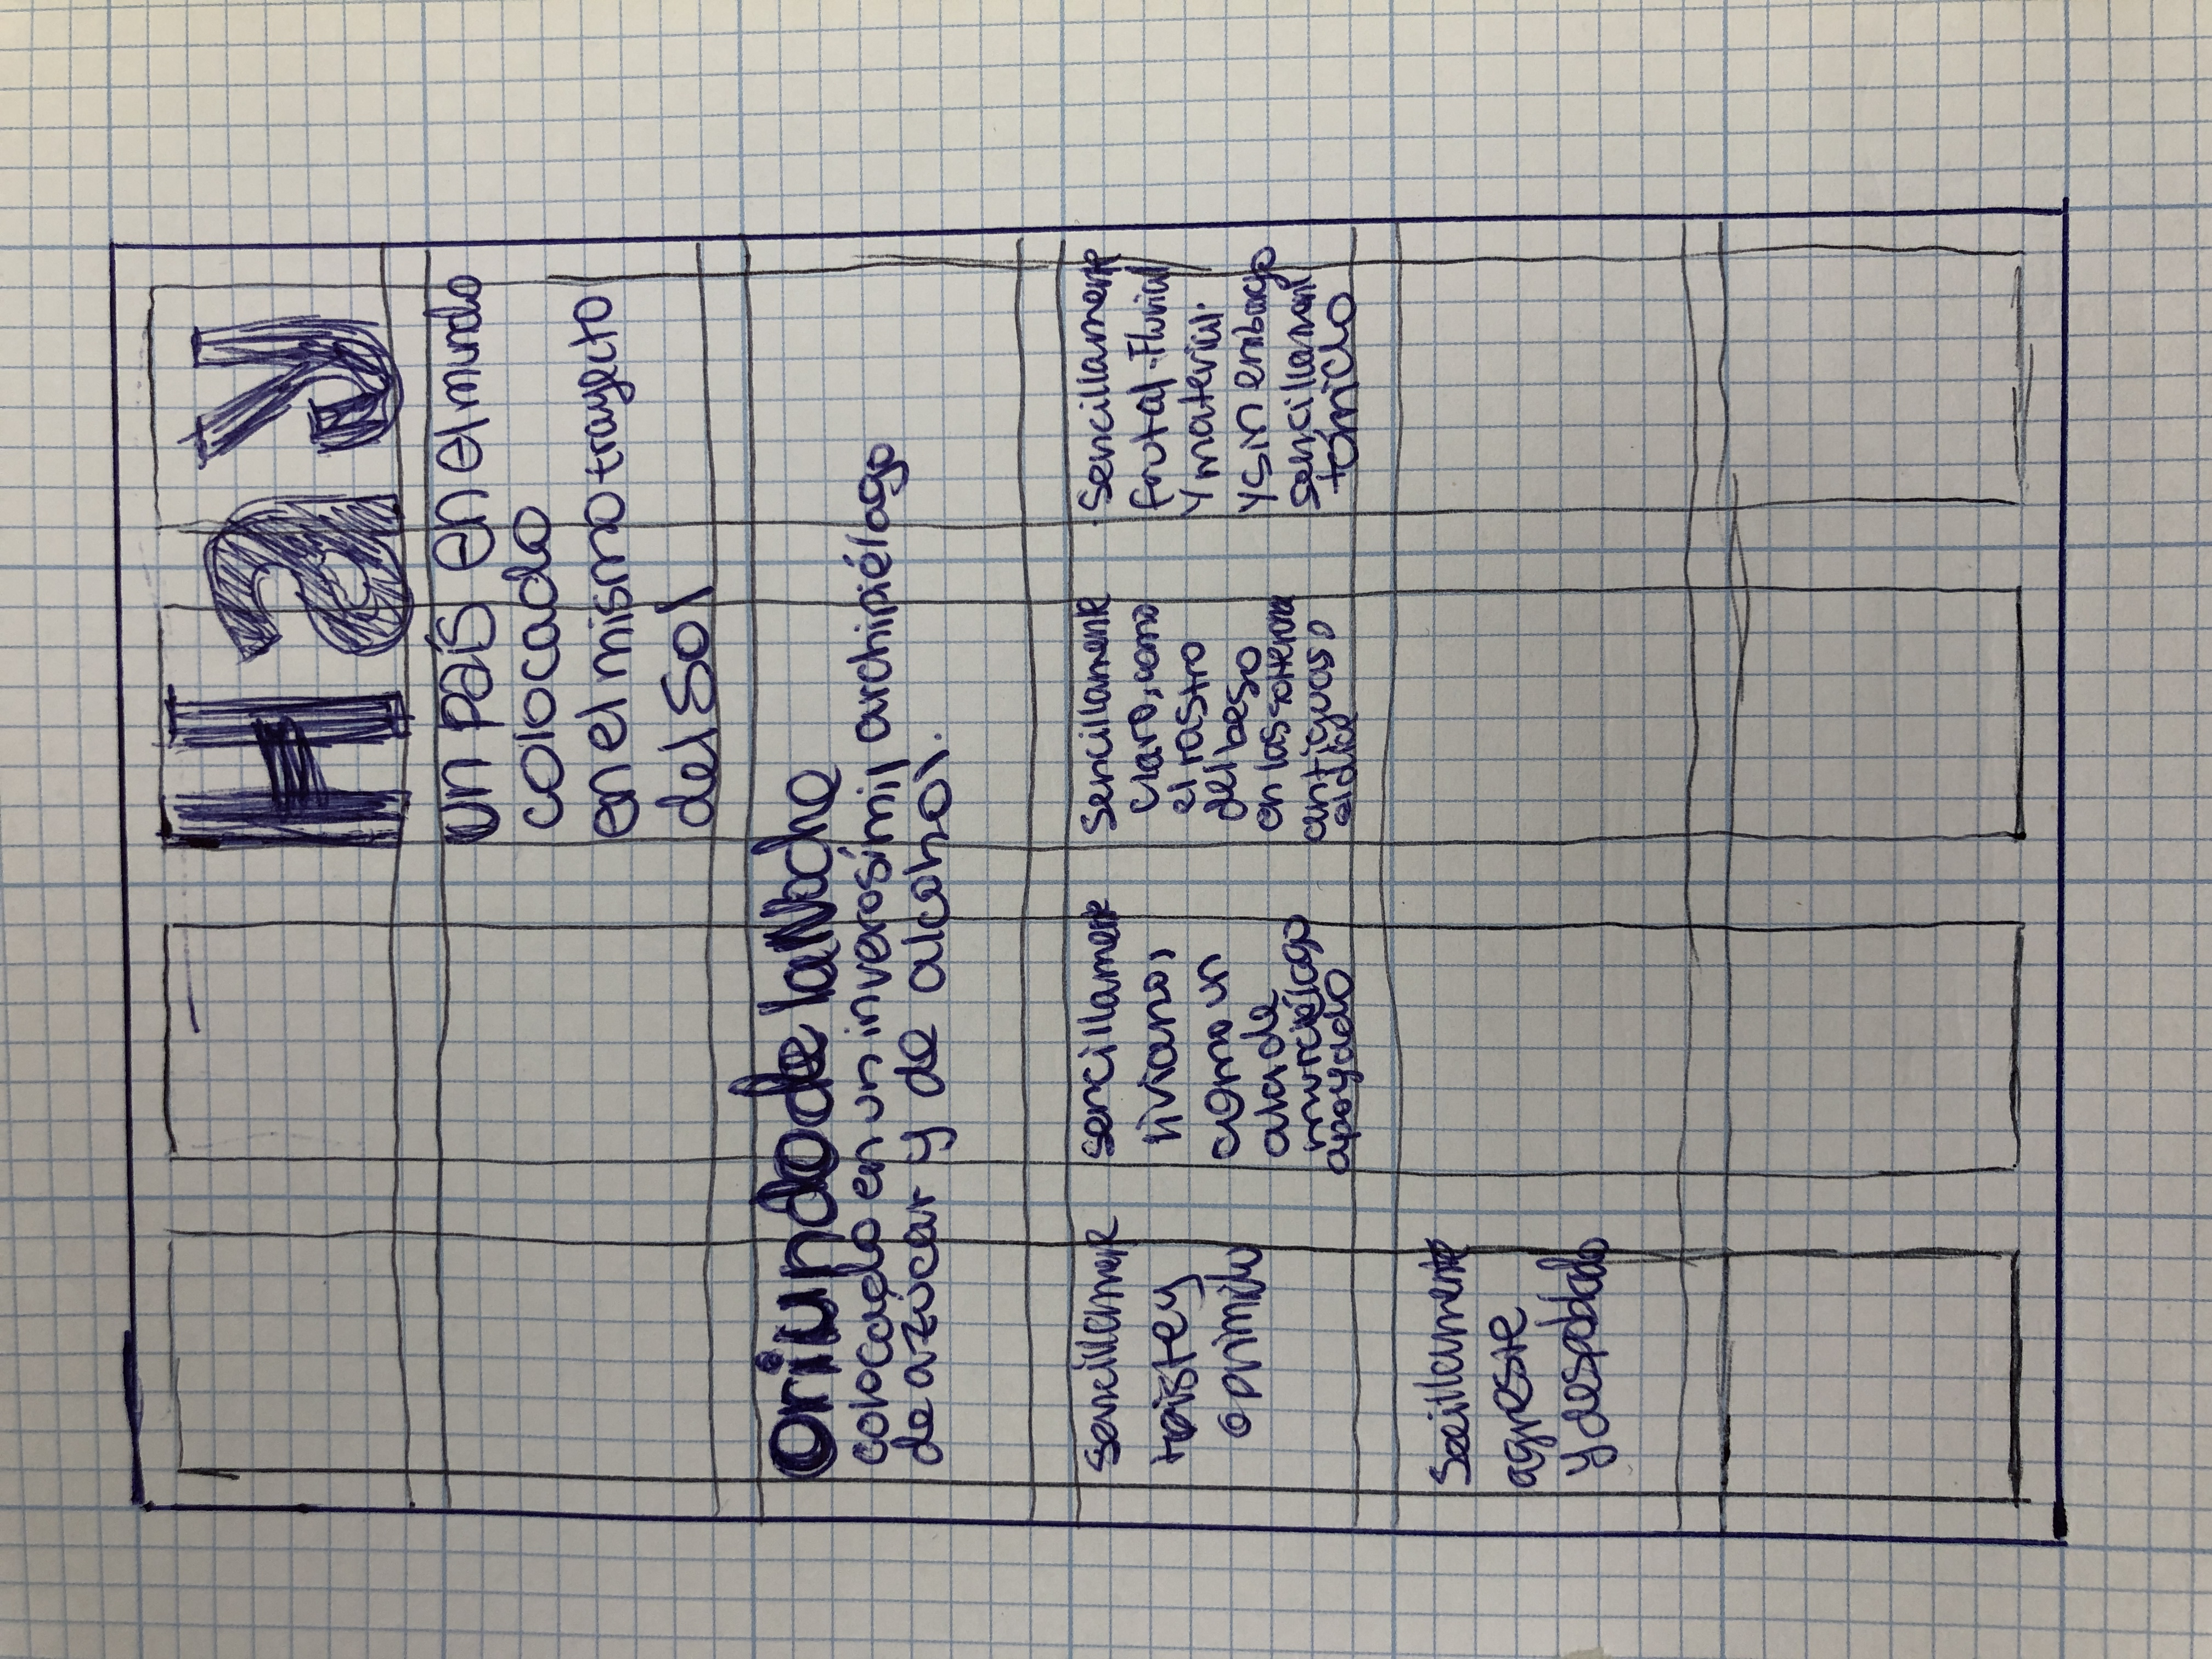 Hay
un país en el mundo
colocado
en el mismo trayecto
del Sol
Oriundo de la Noche
colocado en un inverosímil archipiélago
de azúcar y de alcohol.
Sencillamente
triste y
oprimido
sencillamente
liviano,
como un
ala de
murciélago
apoyado
Sencillamente
claro, como
el rastro
del beso
en las solteronas
antiguas o
el día
Sencillamente
frutal. Fluvial
Y material.
y sin embargo
sencillamente
tórrido
Secillamente
agreste
y despoblado